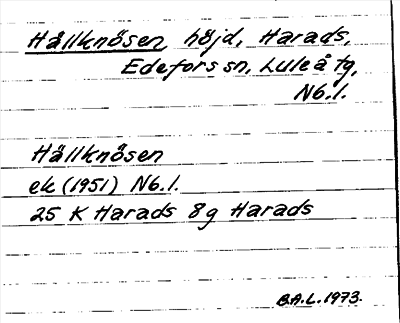 Hällknösen, höjd, Harads,
Edefors sn, Luleå tg,
Nb.l.
Hällknösen
ek (1951) Nb.l.
25 K Harads 8g Harads
B.A.L. 1973.